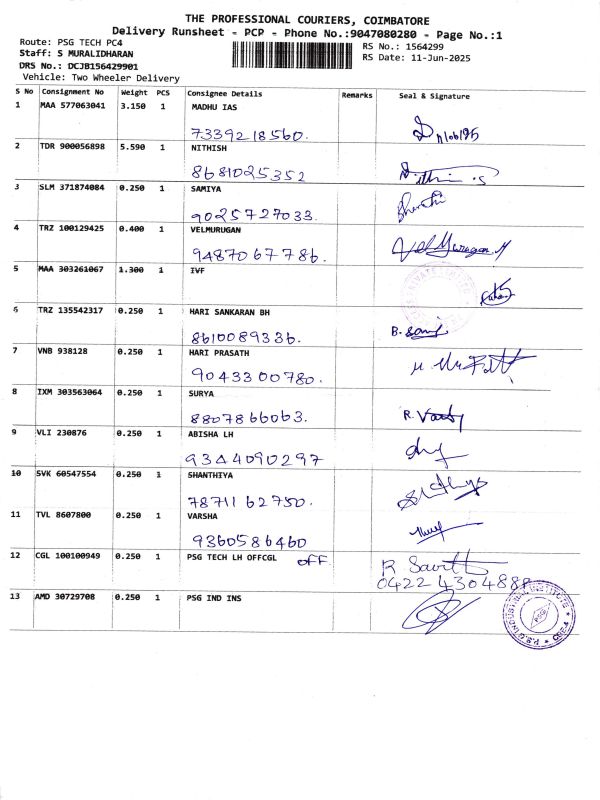 THE PROFESSIONAL COURIERS, COIMBATORE
Delivery Runsheet - PCP - Phone No.:9047080280 - Page No.:1
Route: PSG TECH PC4
RS No.: 1564299
Staff: S MURALIDHARAN
RS Date: 11-Jun-2025
DRS No.: DCJB156429901
Vehicle: Two Wheeler Delivery
S No Consignment No Weight PCS Consignee Details Remarks Seal & Signature
1 MAA 577063041 3.150 1 MADHU IAS
7339218560.
2 TDR 900056898 5.590 1 NITHISH
8681025352
3 SLM 371874084 0.250 1 SAMIYA
9025727033.
4 TRZ 100129425 0.400 1 VELMURUGAN
9487067786. Vel Murugan. M
5 MAA 303261067 1.300 1 IVF
6 TRZ 135542317 0.250 1 HARI SANKARAN BH
8610089336. B.
7 VNB 938128 0.250 1 HARI PRASATH
9043300780.
8 IXM 303563064 0.250 1 SURYA
8807866063. R.
9 VLI 230876 0.250 1 ABISHA LH
9344090297
10 SVK 60547554 0.250 1 SHANTHIYA
7871162750.
11 TVL 8607800 0.250 1 VARSHA
9360586460
12 CGL 100100949 0.250 1 PSG TECH LH OFFCGL off R
0422 4304888
13 AMD 30729708 0.250 1 PSG IND INS
P.S.G INDUSTRIAL INSTITUTE
PSG
CBE-4